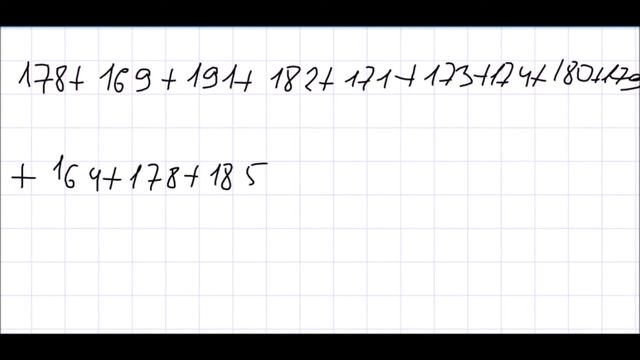 178+ 169 + 191+ 182+ 171+ 173+174+ 180+179
+ 164+178+185